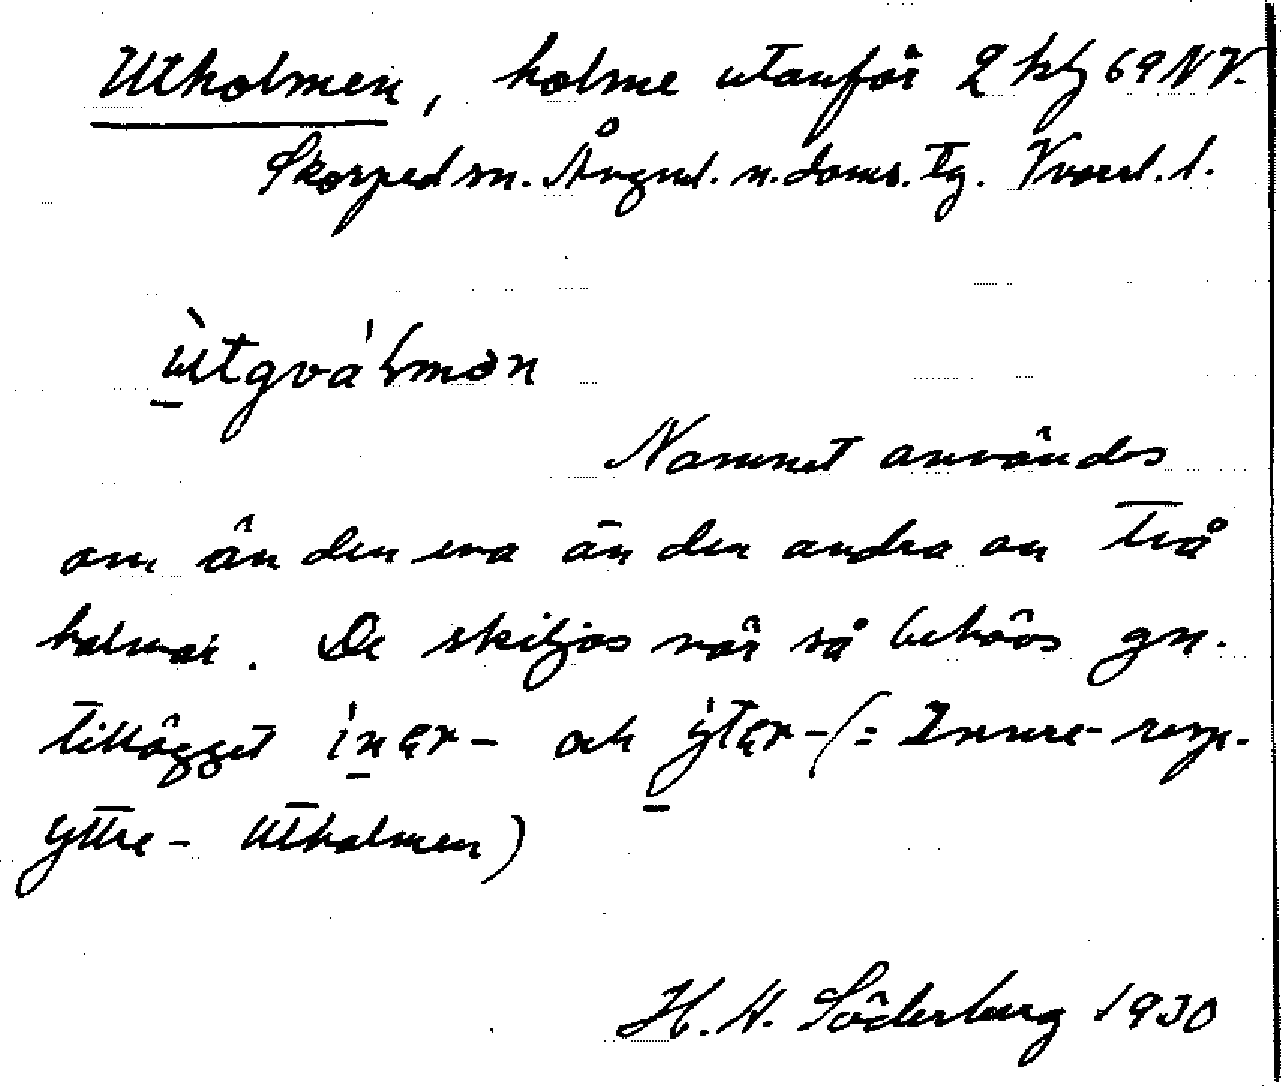 Utholmen, holme utanför 2 kbl 69 NV.
Skorped sn. Ångml. n. doms. Tg. Västl. l.
ùtgvåʹɫmən
Namnet användes
om än den ena än den andra av två
holmar. De skiljas när så behövs gm.
tillägget ìnər- och ỳtər- (= Innre- resp.
Yttre- Utholmen)
H. H. Söderberg 1930